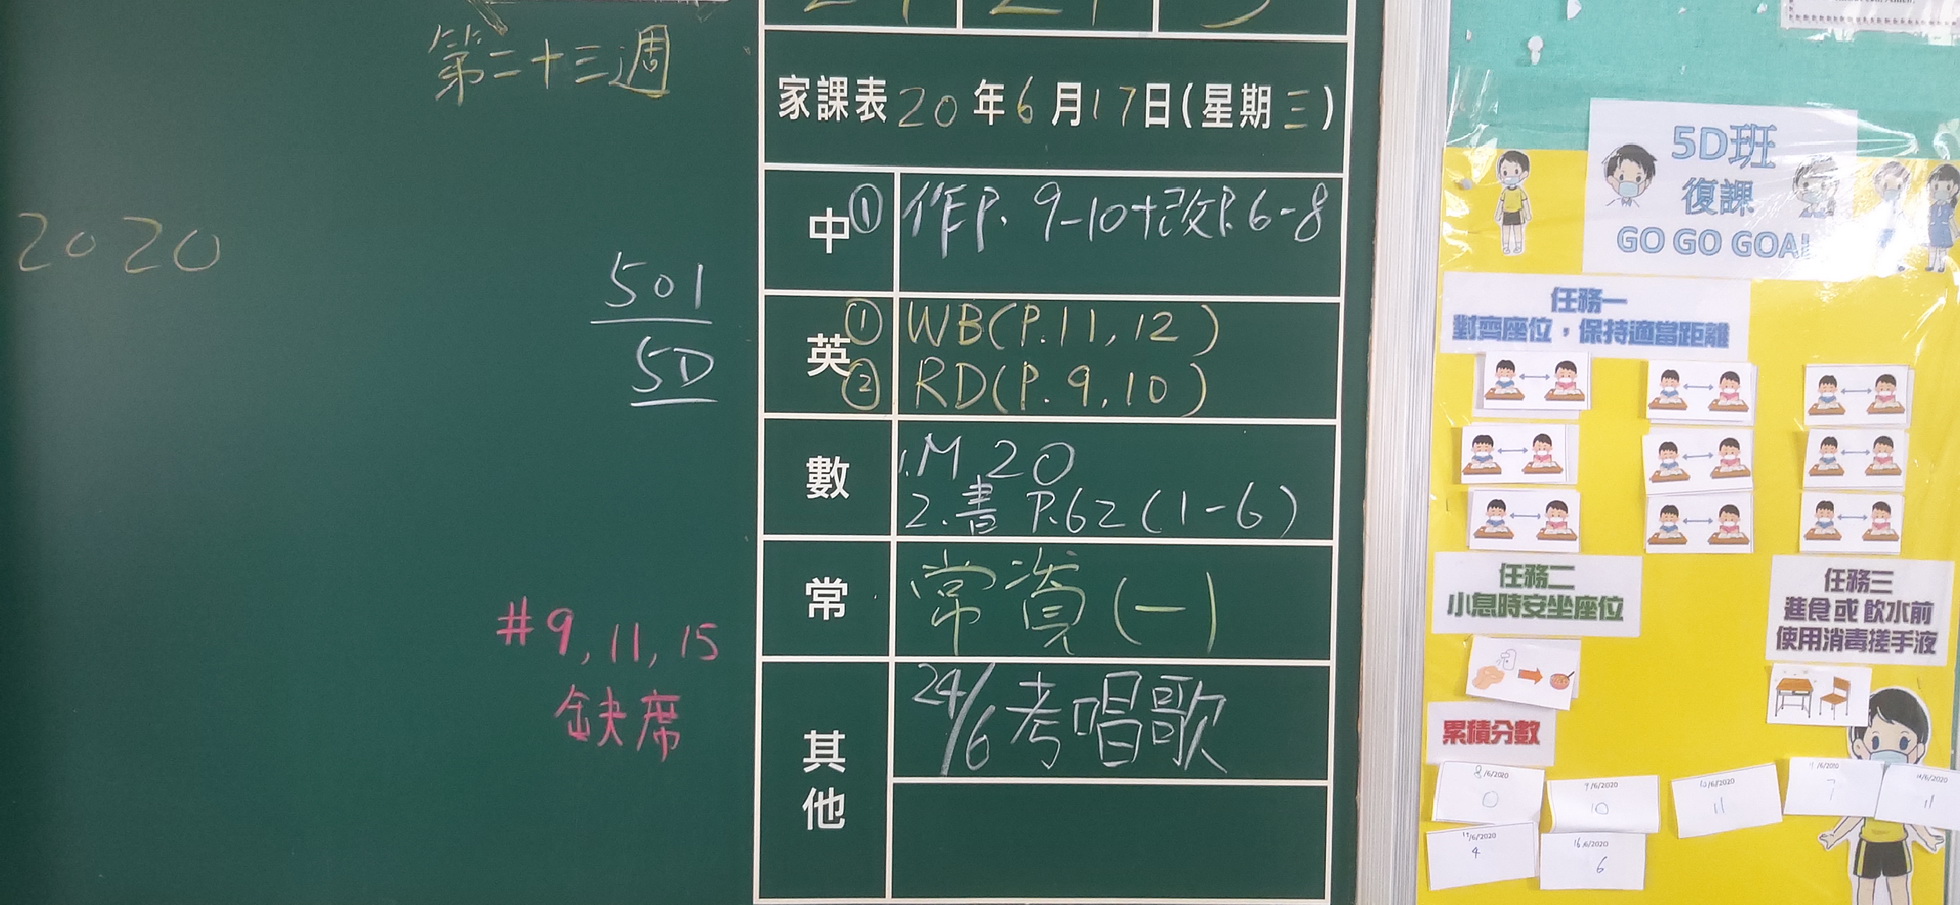 第二十三週
2020
501
5D
#9, 11, 15
缺席
家課表20年6月17日(星期三)
中 ① 作P. 9-10+改P.6-8
英 ① WB(P.11,12)
② RD(P.9,10)
數 1.M 20
2.書 P.62(1-6)
常 常資(一)
其他 24/6考唱歌
5D班
復課
GO GO GOAL
任務一
對齊座位，保持適當距離
任務二
小息時安坐座位
任務三
進食或飲水前
使用消毒搓手液
累積分數
8/6/2020
0
9/6/2020
10
10/6/2020
11
11/6/2020
7
11
4
16/6/2020
6